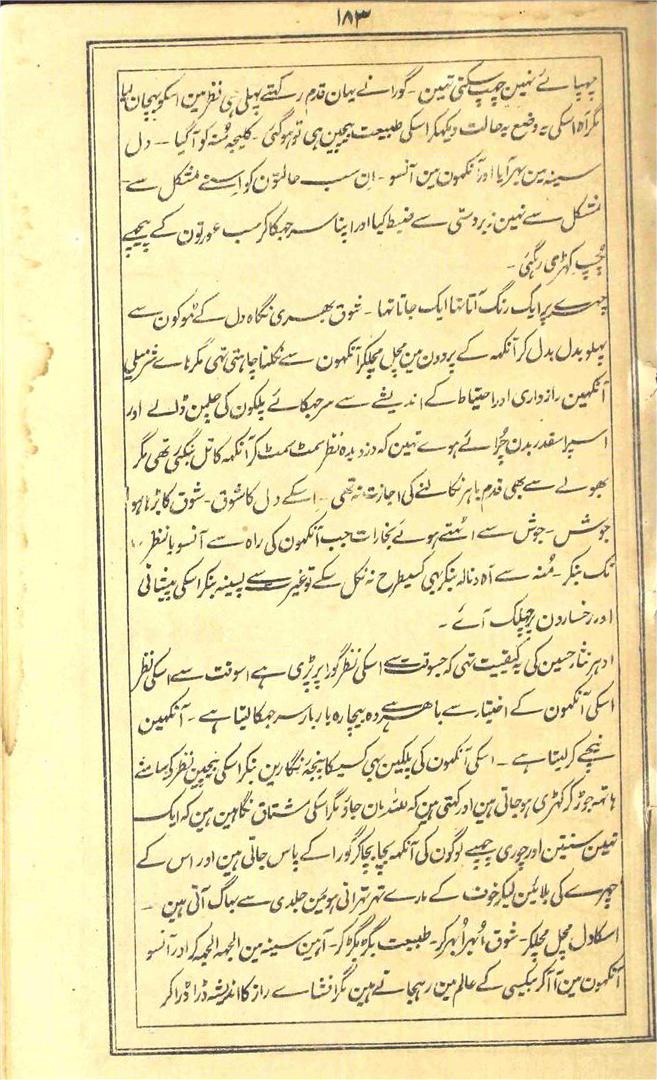 ۱۸۳
چھپائے نہین چھپ سکتی تھین - گورا نے یہان قدم رکھتے پہلی ہی نظر مین اسکو پہچان لیا
مگر آہ اسکی یہ وضع یہ حالت دیکھکر اسکی طبیعت بیچین ہی تو ہو گئی - کلیجہ منہ کو آگیا - دل
سینہ مین بھر آیا اور آنکھون مین آنسو - ان سب حالتون کو اسنے مشکل سے
مشکل سے نہین زبردستی سے ضبط کیا اور اپنا سر جھکا کر سب عورتون کے پیچھے
چپ کھڑی رہگئی -
چہرے پر ایک رنگ آتا تھا ایک جاتا تھا - شوق بھری نگاہ دل کے ٹھوکون سے
پہلو بدل بدل کر آنکھہ کے پردون مین مچل مچلکر آنکھون سے نکلنا چاہتی تھی مگر ہائے شرمیلی
آنکھین رازداری اور احتیاط کے اندیشے سے سر جھکائے پلکون کی چلمن ڈالے اور
اسپر اسقدر بدن چرائے ہوے تھین کہ دزدیدہ نظر سمٹ سمٹ کر آنکھہ کا تل بنگئی تھی مگر
بھولے سے بھی قدم باہر نکالنے کی اجازت نہ تھی - اسکے دل کا شوق - شوق کا بڑھا ہوا
جوش - جوش سے اٹھتے ہوئے بخارات جب آنکھون کی راہ سے آنسو یا نظر
تک بنکر - منہ سے آہ و نالہ بنکر بھی کسیطرح نہ نکل سکے تو غیرت سے پسینہ بنکر اسکی پیشانی
اور رخسارون پر جھلک آئے -
ادہر نثار حسین کی یہ کیفیت تھی کہ جسوقت سے اسکی نظر گورا پر پڑی ہے اسوقت سے اسکی نظر
اسکی آنکھون کے اختیار سے باہر ہے وہ بیچارہ بار بار سر جھکا لیتا ہے - آنکھین
نیچے کر لیتا ہے - اسکی آنکھون کی پلکین بھی کسیکا پنجۂ نگارین بنکر اسکی بیچین نظر کے سامنے
ہاتھہ جوڑ کر کھڑی ہو جاتی ہین اور کہتی ہین کہ للہ مان جاؤ مگر اسکی مشتاق نگاہین ہین کہ ایک
نہین سنتین اور چوری چھپے لوگون کی آنکھہ بچا بچا کر گورا کے پاس جاتی ہین اور اس کے
چہرے کی بلائین لیکر خوف کے مارے تھر تھراتی ہوئین جلدی سے بھاگ آتی ہین -
اسکا دل مچل مچلکر - شوق ابھر ابھر کر - طبیعت بگڑ بگڑ کر - آہین سینہ مین الجھہ الجھہ کر اور آنسو
آنکھون مین آ آ کر بیکسی کے عالم مین رہجاتے ہین مگر افشائے راز کا اندیشہ ڈرا ڈرا کر